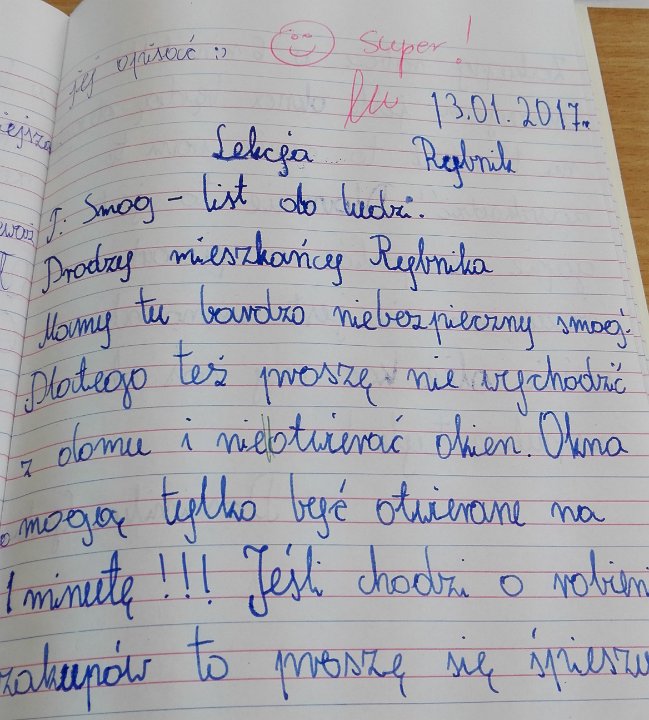 jej opisać :)
super!
13.01.2017r.
Lekcja Rybnik
T: Smog – list do ludzi.
Drodzy mieszkańcy Rybnika
Mamy tu bardzo niebezpieczny smog.
Dlatego też proszę nie wychodzić
z domu i nie otwierać okien. Okna
mogą tylko być otwierane na
1 minutę!!! Jeśli chodzi o robieni
zakupów to proszę się śpieszy